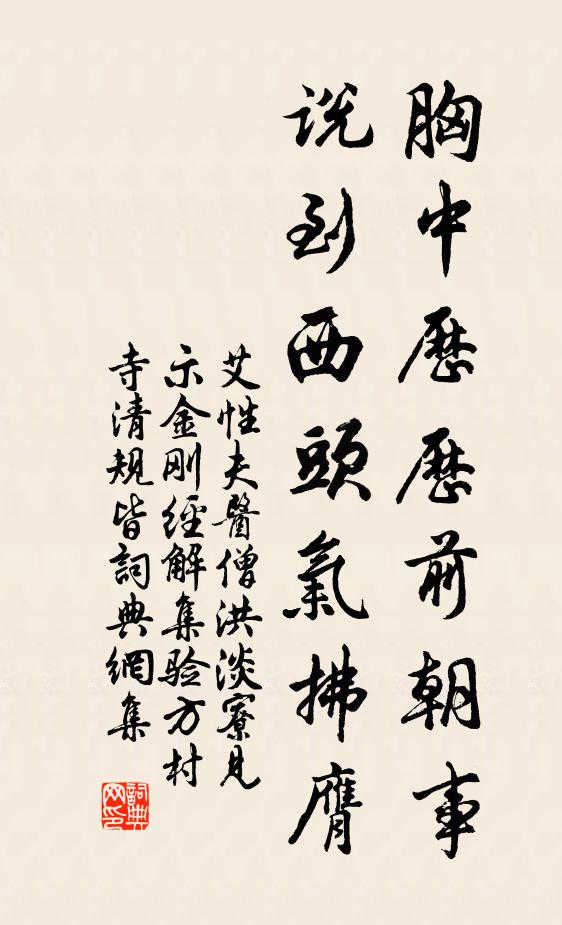 胸中歷歷前朝事
説到西頭氣拂膺
艾性夫醫僧洪淡寮見
示金剛經解集验方村
寺清規皆詞典網集
詞典網印